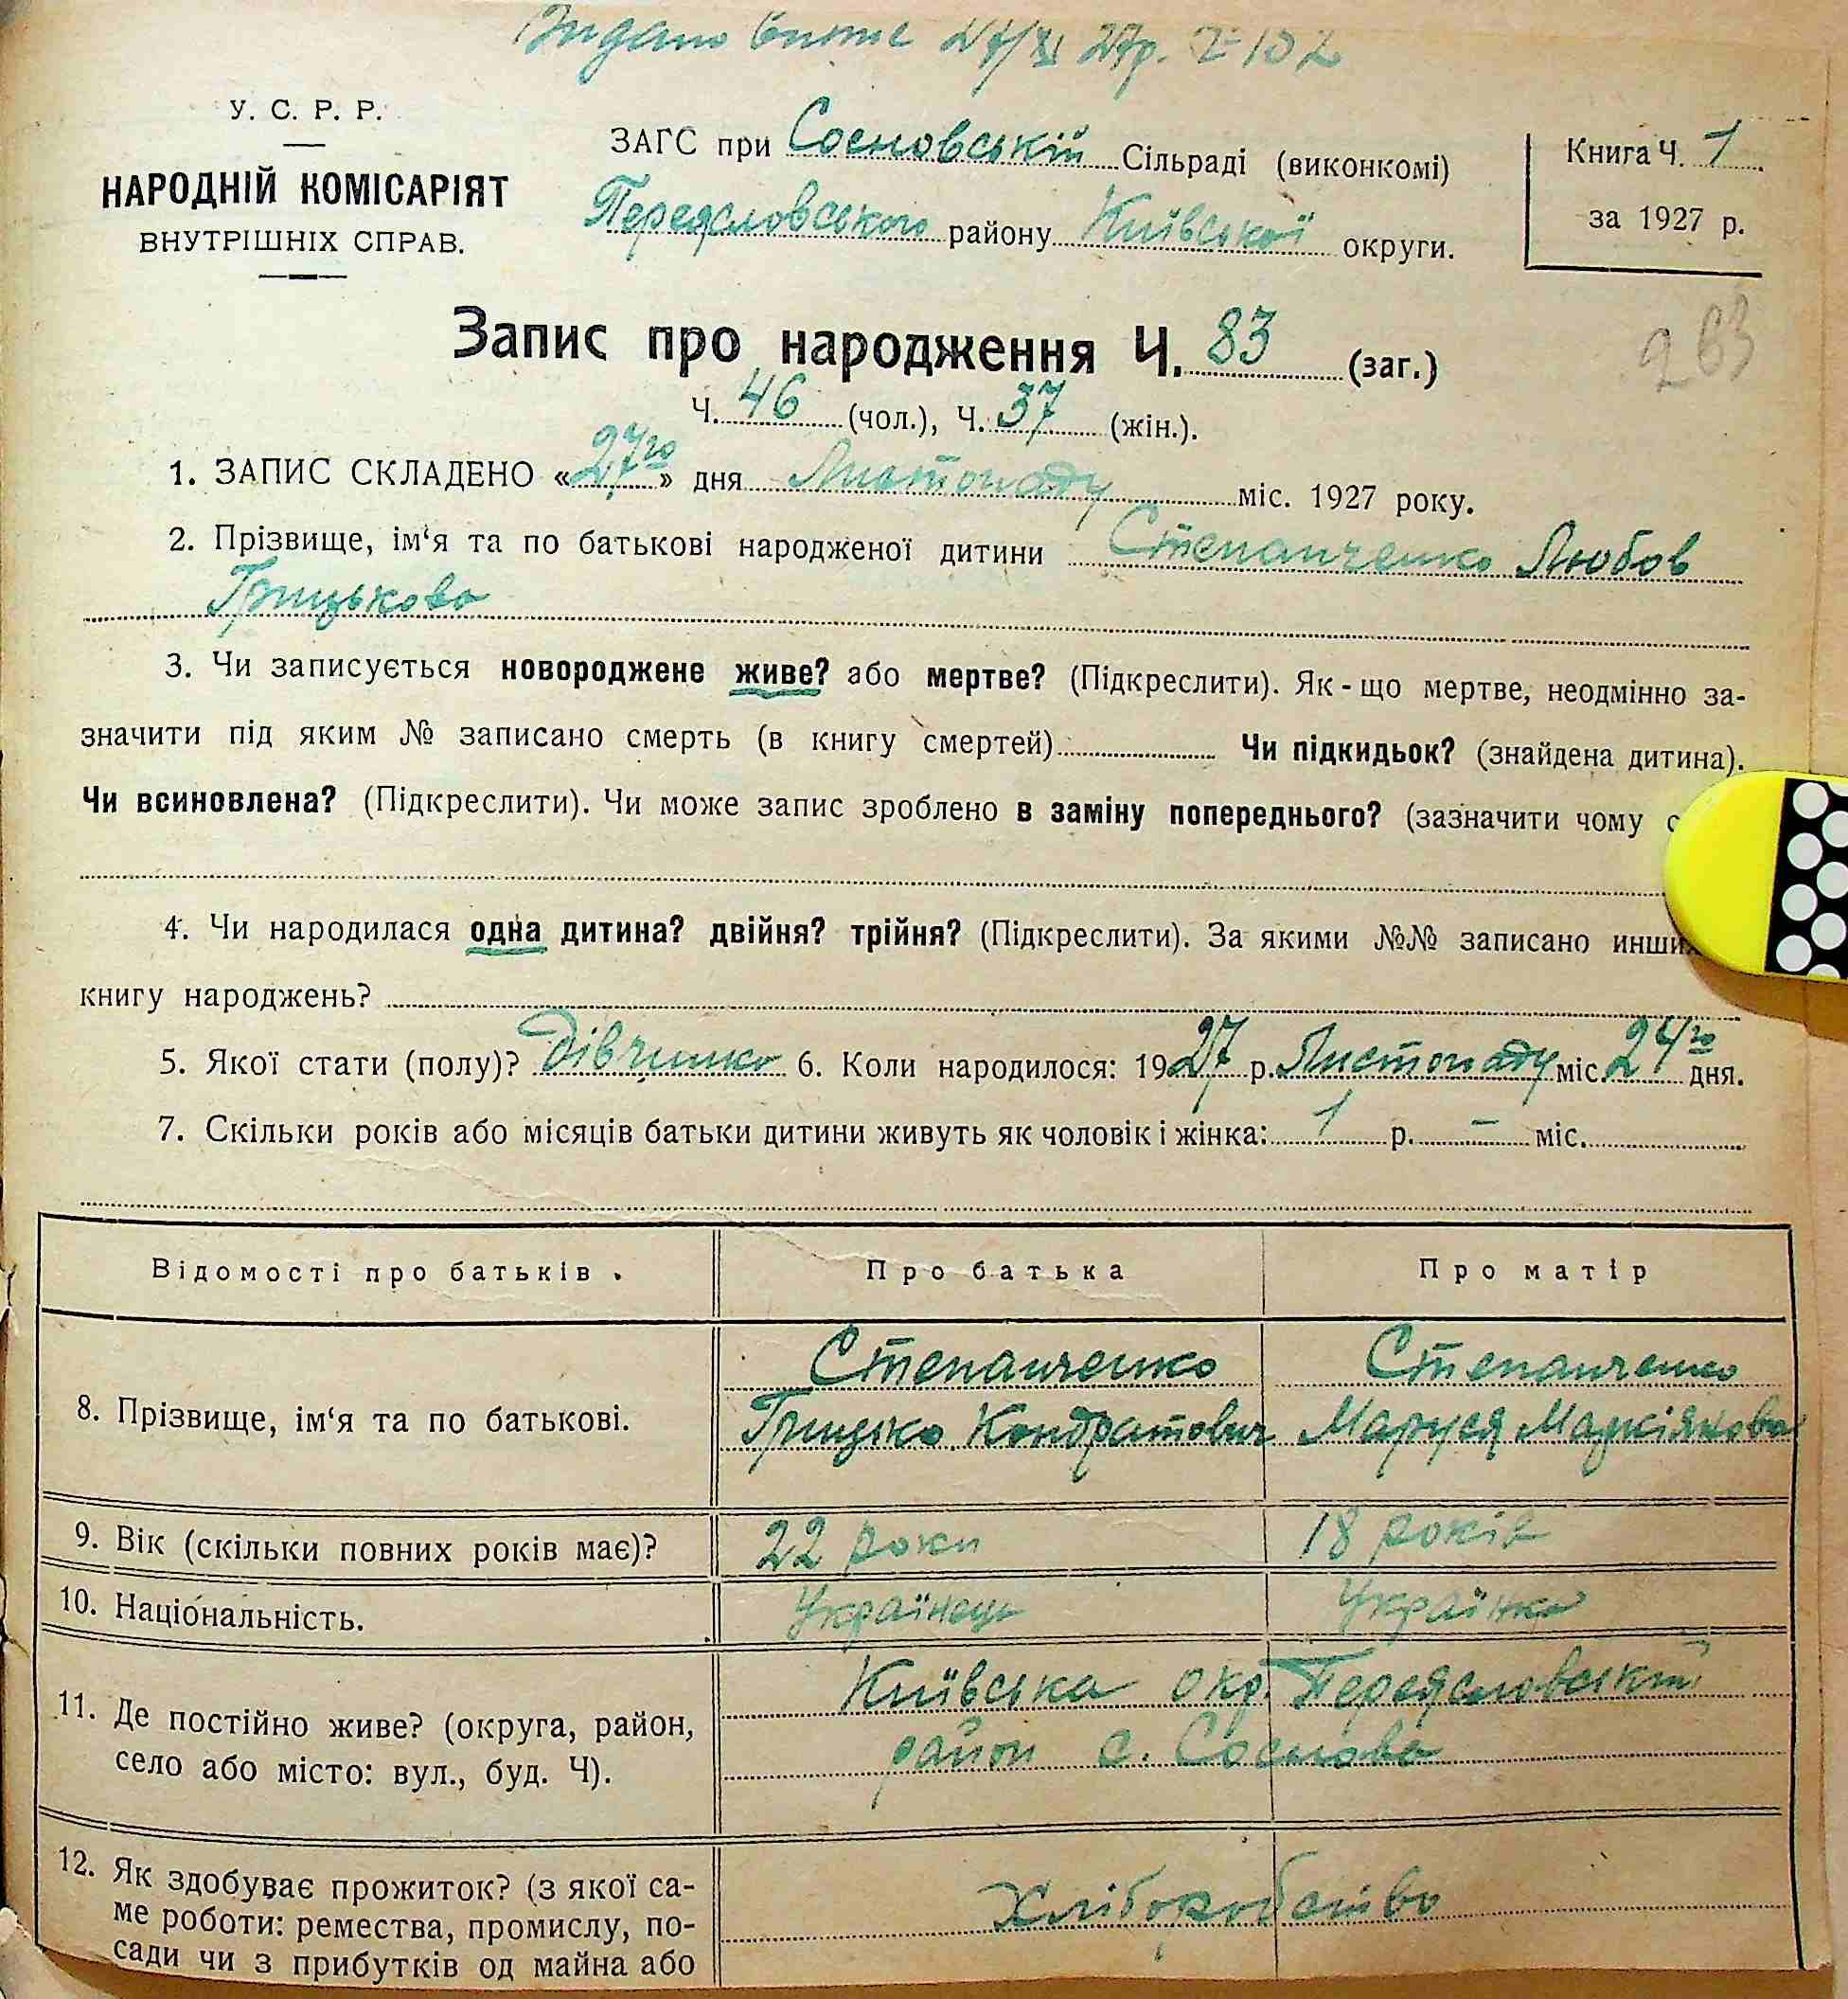 Видано виписе 27/XI 27р. № 102
У. С. Р. Р.
НАРОДНІЙ КОМІСАРІЯТ
ВНУТРІШНІХ СПРАВ.
ЗАГС при Сосновській Сільраді (виконкомі)
Переясловського району Київської округи.
Книга Ч. 1
за 1927 р.
263
Запис про народження Ч. 83 (заг.)
Ч. 46 (чол.), Ч. 37 (жін.).
1. ЗАПИС СКЛАДЕНО «27го» дня Листопаду міс. 1927 року.
2. Прізвище, ім‘я та по батькові народженої дитини Степанченко Любов
Грицькова
3. Чи записується новороджене живе? або мертве? (Підкреслити). Як-що мертве, неодмінно за-
значити під яким № записано смерть (в книгу смертей) Чи підкидьок? (знайдена дитина).
Чи всиновлена? (Підкреслити). Чи може запис зроблено в заміну попереднього? (зазначити чому
4. Чи народилася одна дитина? двійня? трійня? (Підкреслити). За якими №№ записано инших
книгу народжень?
5. Якої стати (полу)? Дівчинка 6. Коли народилося: 1927 р. Листопаду міс. 24го дня.
7. Скільки років або місяців батьки дитини живуть як чоловік і жінка: 1 р. – міс.
Відомості про батьків.
Про батька
Про матір
8. Прізвище, ім‘я та по батькові.
Степанченко
Грицько Кондратович
Степанченко
Маруся Маркіянова
9. Вік (скільки повних років має)?
22 роки
18 років
10. Національність.
Українець
Українка
11. Де постійно живе? (округа, район,
село або місто: вул., буд. Ч).
Київська окр. Переясловський
район с. Соснова
12. Як здобуває прожиток? (з якої са-
ме роботи: ремества, промислу, по-
сади чи з прибутків од майна або
Хліборобство